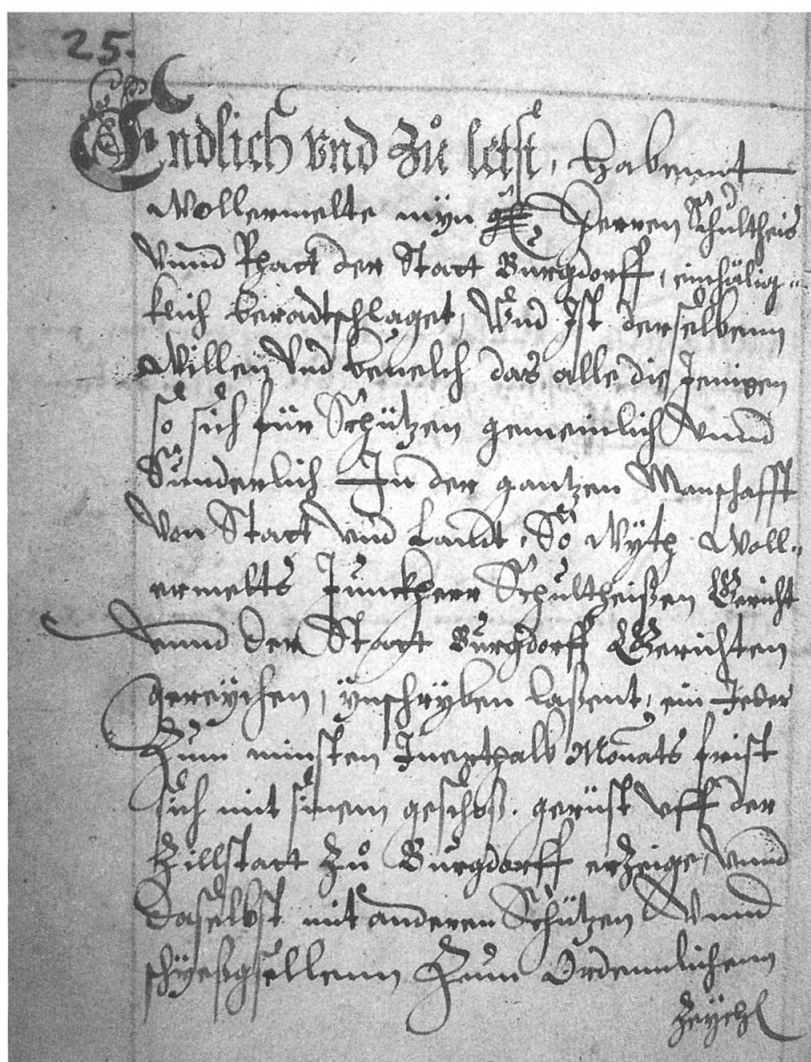 25.
Endlich vnd Zů letst, habennt
Wollermelte myn Herren Schultheis
Vnnd Rhatt der Statt Burgdorff, einhälig-
klich beradtschlaget, Vnd Ist derselbenn
Willen Vnd beuelch das alle die Jenigen
so sich für Schützen gemeinlich Vnnd
Sunderlich In der gantzen Manschafft
Von Statt vnd Landt, So Wyth Woll-
ermelts Junckherr Schultheißen Gericht
vnnd der Statt Burgdorff Gerichten
gereychen, ynschryben laßent, ein Jeder
Zum minsten Innerthalb Monats frist
sich mit sinem geschoß gerüst vff der
Zillstatt Zů Burgdorff erZeige, Vnnd
daselbst mit anderen Schützen Vnnd
schyeßgsellenn Zum Ordennlichenn